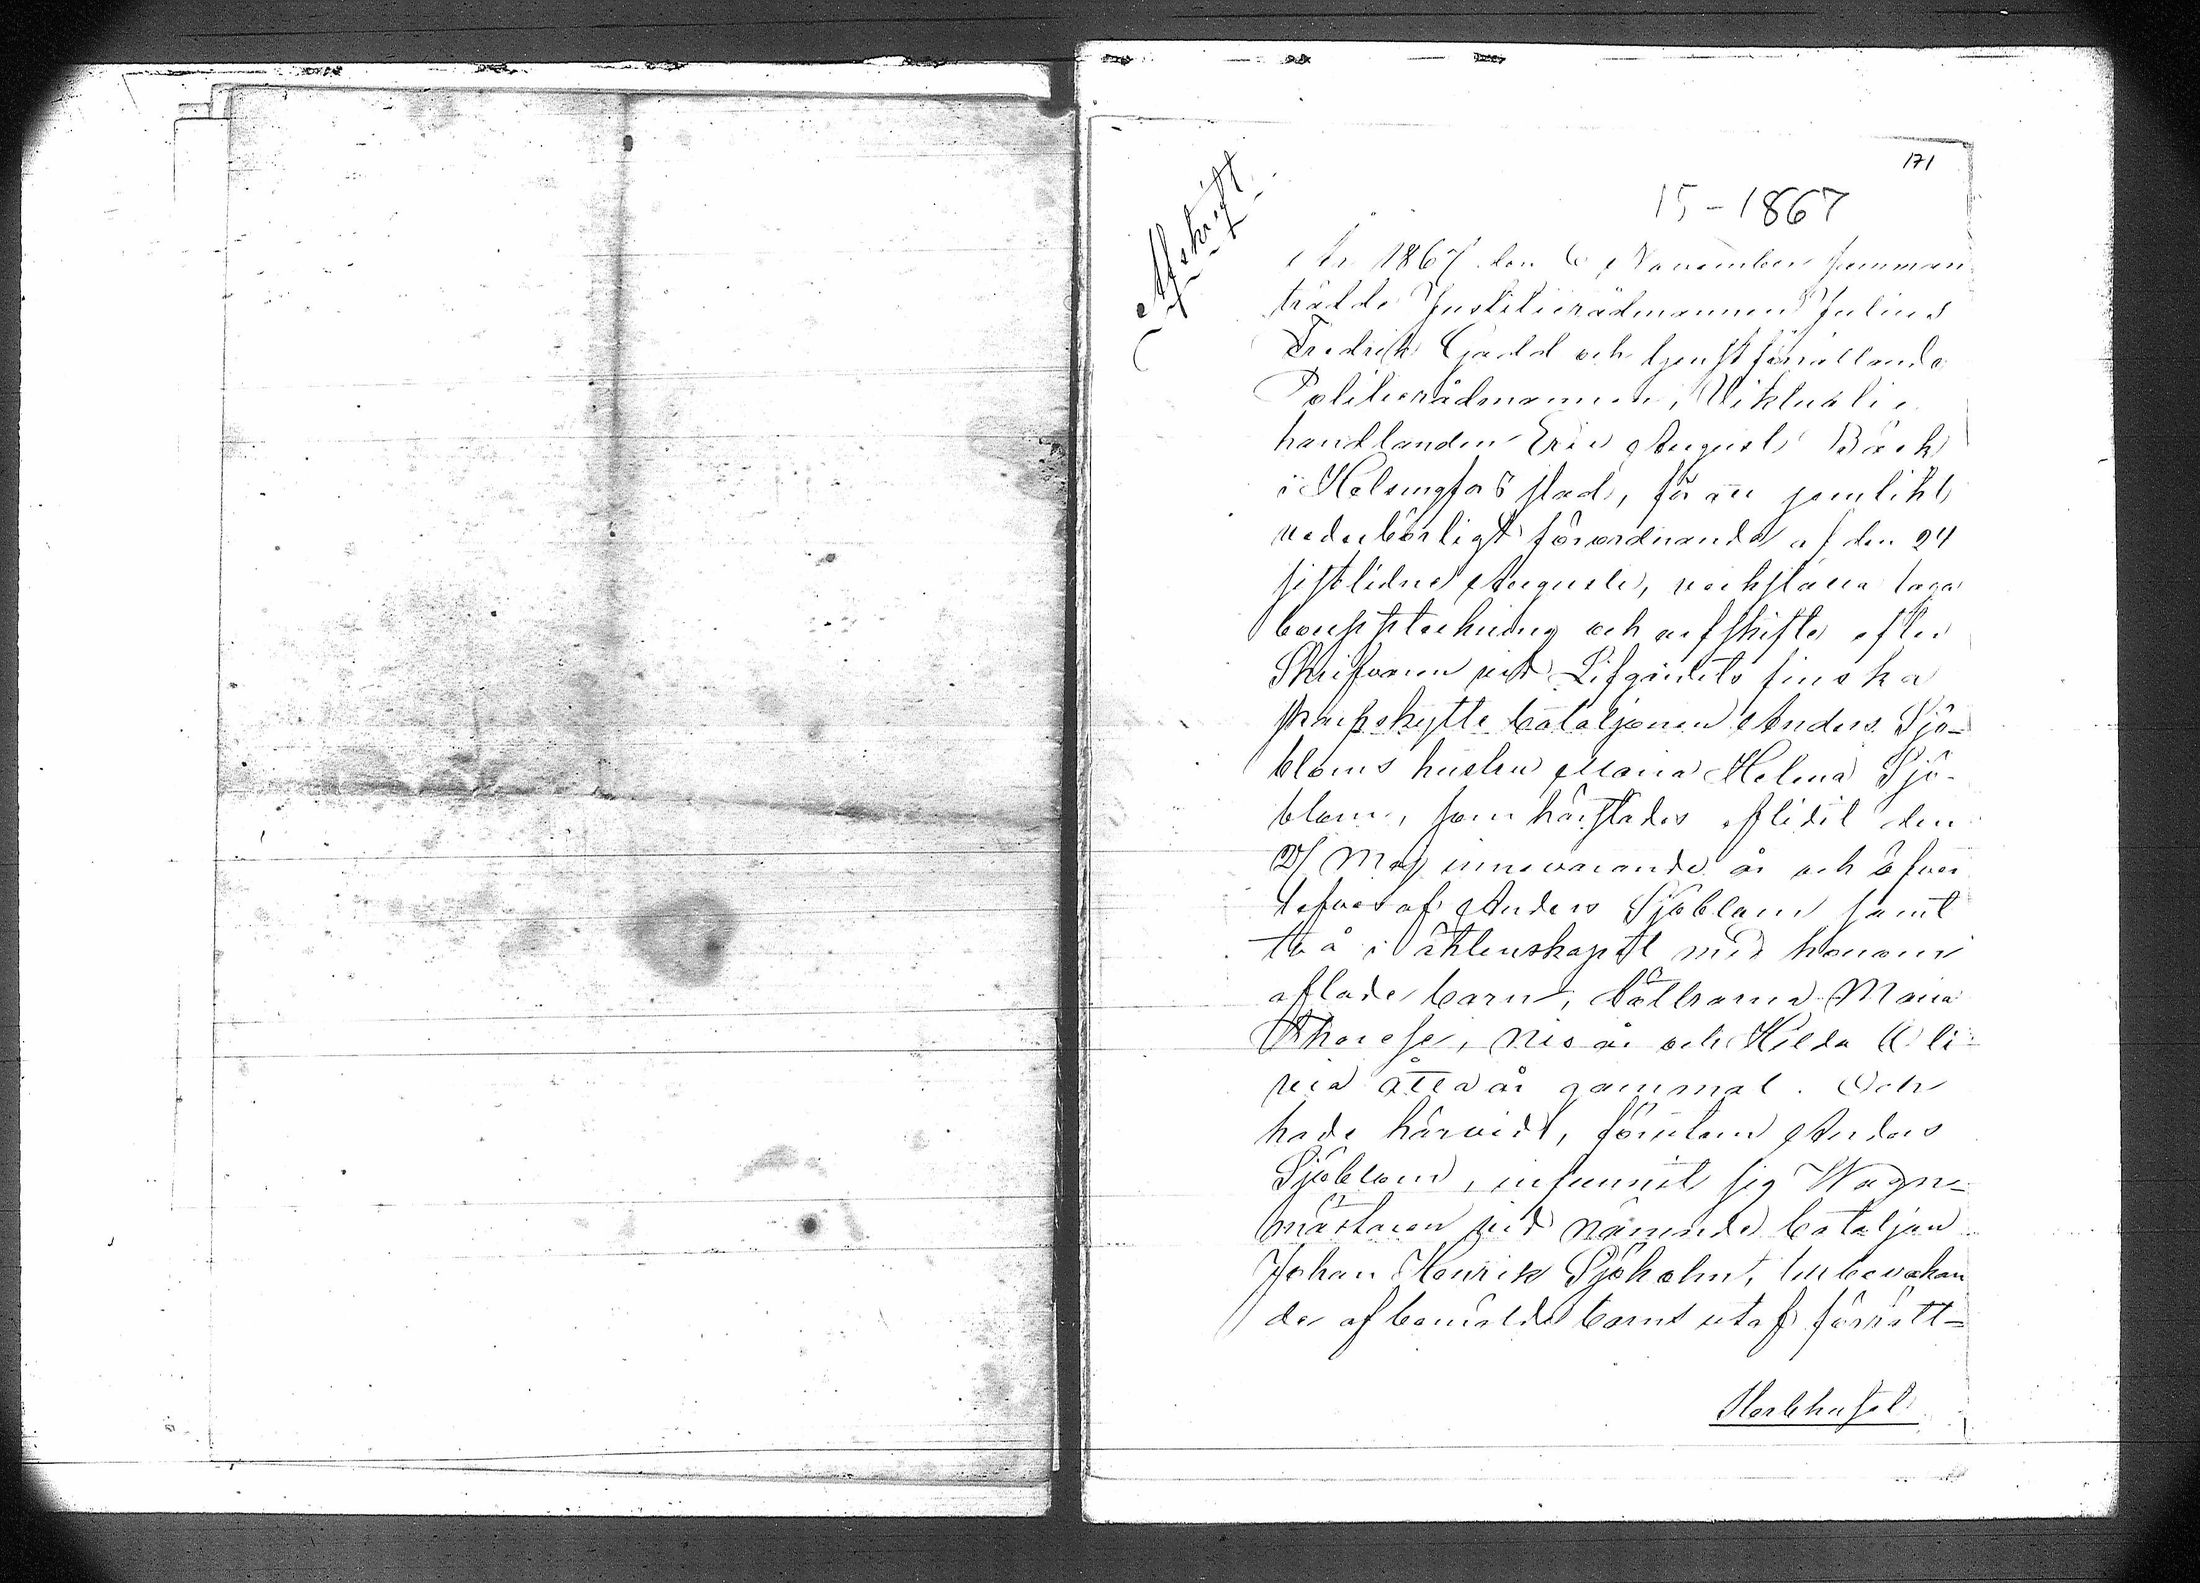 171
15-1867
Afskrift.
År 1867 den 6 November samman
trädde Justitierådmannen Julius
Fredrik Gadd och tjenstförrättande
Politierådmannen, Viktualie
handlanden Eric August Bäck
i Helsingfors stad, för att jemlikt
vederbörligt förordnande af den 24
sistlidne Augusti, verkställa laga
bouppteckning och arfskifte efter
Skrifvaren vid Lifgardets finska
skarpskytte bataljonen Anders Sjö-
bloms hustru Maria Helena Sjö-
blom, som härstädes aflidit den
Maj innevarande år och öfver
lefves af Anders Sjöblom samt
två i äktenskapet med honom
aflade barn, döttrarna Maria
Therese, nio år och Hilda Oli-
via åtta år gammal. Och
hade härvid, förutom Anders
Sjöblom, infunnit sig Wagn-
mästaren vid nämnde bataljon
Johan Henrik Sjöholm, till bevakan
de af bemälde barns utaf förrätt-
Sterbhuset